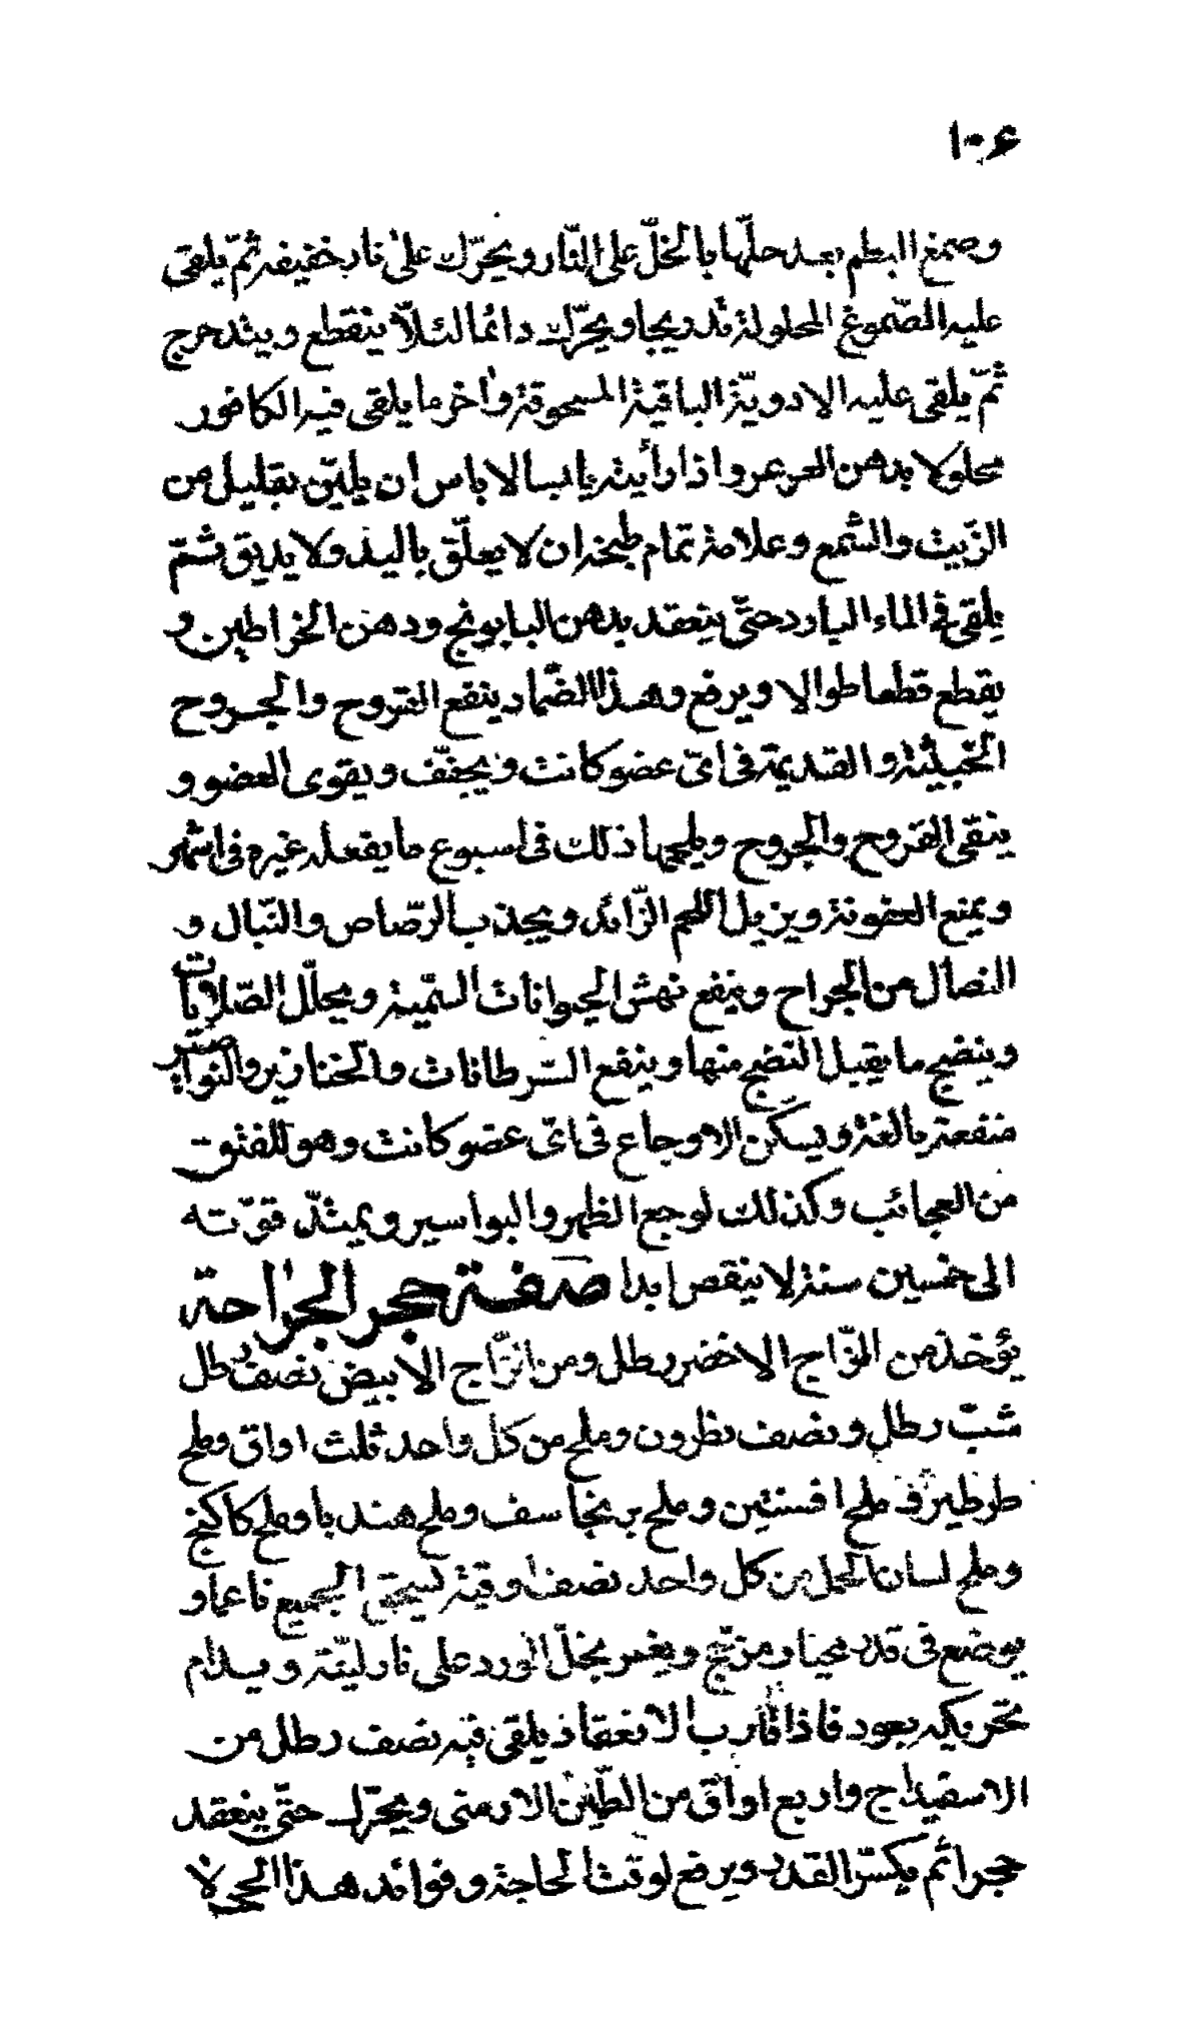 ١٠۶
وصمغ البطم بعد حلّها بالخلّ على النّار ويحرّك على نار خفيفه ثمّ يلقى
عليه الصّموغ المحلولة تدريجا ويحرّك دائما لئلّا ينقطع ويتدحرج
ثمّ يلقى عليه الادويّة الباقية المسحوقة واخر ما يلقى فيه الكافور
محلولا بدهن العرعر واذا رأيته يابسا لا باس ان يليّن بقليل من
الزّيت والشّمع وعلامة تمام طبخه ان لا يعلّق باليد ولا يدبق ثمّ
يلقى فى الماء البارد حتّى ينعقد بدهن البابونج ودهن الخراطين و
يقطع قطعا طوالا ويرفع وهذا الضّماد ينفع القروح والجروح
الخبيثة والقديمة فى اىّ عضو كانت ويجفّف ويقوى العضو و
ينقى القروح والجروح ويلحمها ذلك فى اسبوع ما يفعله غيره فى اشهر
ويمنع العفونة ويزيل اللحم الزّائد ويجذب الرّصاص والنّبال و
النصال من الجراح وينفع نهش الحيوانات السّمية ويحلّل الصّلابات
وينضج ما يقبل النضج منها وينفع السّرطانات والخنازير والنواصير
منفعة بالغة ويسكّن الاوجاع فى اىّ عضو كانت وهو للفتوق
من العجائب وكذلك لوجع الظهر والبواسير ويمتدّ قوّته
الى خمسين سنة لا ينقص ابدا صفة حجر الجراحة
يؤخذ من الزّاج الاخضر رطل ومن الزّاج الابيض نصف رطل
شبّ رطل ونصف نطرون وملح من كل واحد ثلث اواق وملح
طرطير و ملح افسنتين وملح برنجاسف وملح هندبا وملح كاكنج
وملح لسان الحمل من كل واحد نصف اوقية يسحق الجميع ناعما و
يوضع فى قدر فخار مزجّج ويغمر بخلّ الورد على نار ليّنة ويدام
تحريكه بعود فاذا قارب الانعقاد يلقى فيه نصف رطل من
الاسفيداج واربع اواق من الطّين الارمنى ويحرّك حتّى ينعقد
حجرا ثم يكسّر القدر ويرفع لوقت الحاجة وفوائد هذا الحجر لا